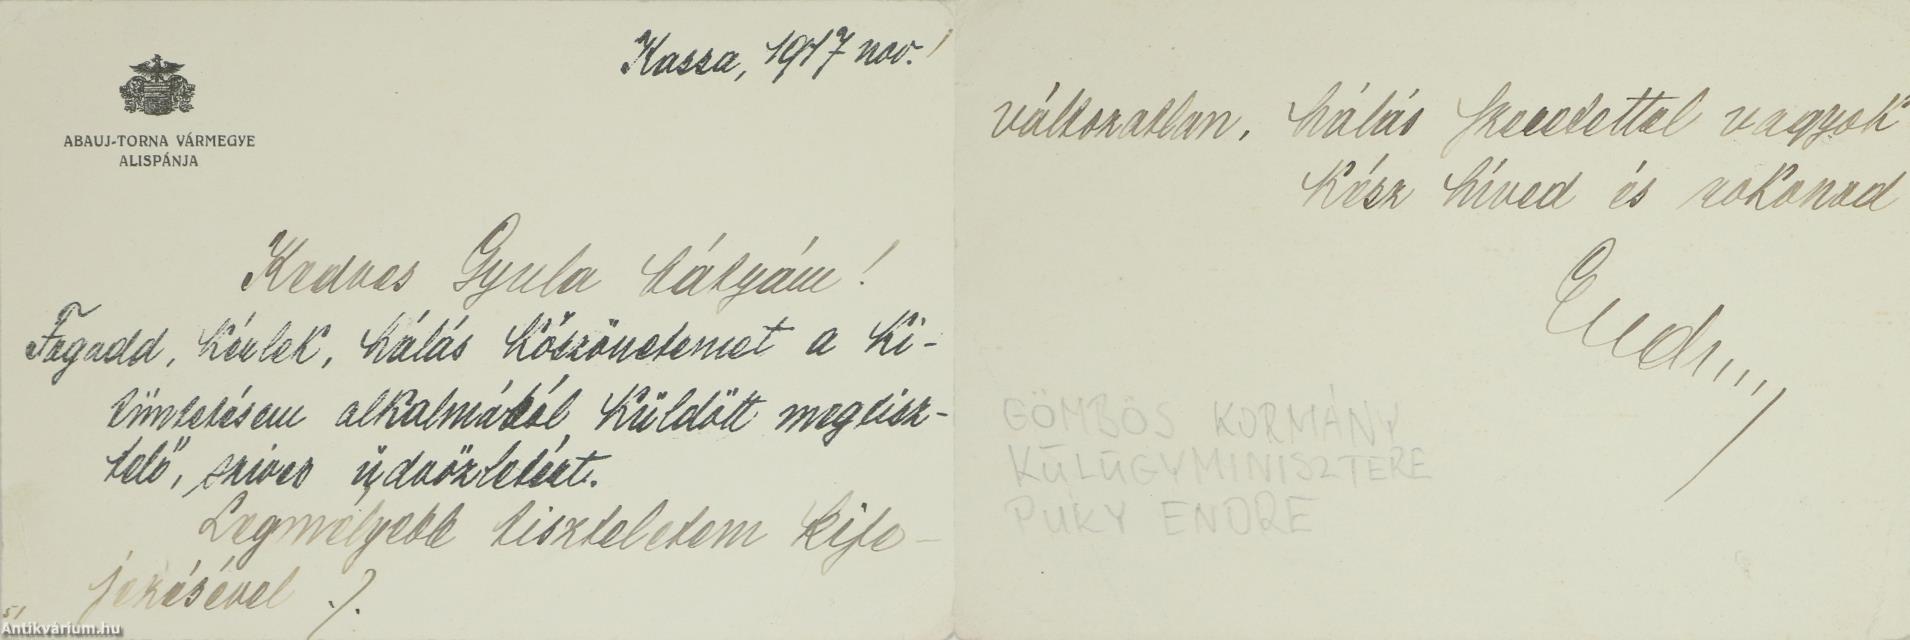 Kassa, 1917 nov. 1
ABAUJ-TORNA VÁRMEGYE
ALISPÁNJA
Kedves Gyula bátyám!
Fogadd, kérlek, hálás köszönetemet a ki-
tüntetésem alkalmából küldött megtisz-
telő, szives üdvözletéért.
Legmélyebb tiszteletem kife-
jezésével ./.
51
változatlan, hálás szeretettel vagyok
kész híved és rokonod
Endre
GÖMBÖS KORMÁNY
KÜLÜGYMINISZTERE
PUKY ENDRE
Antikvárium.hu